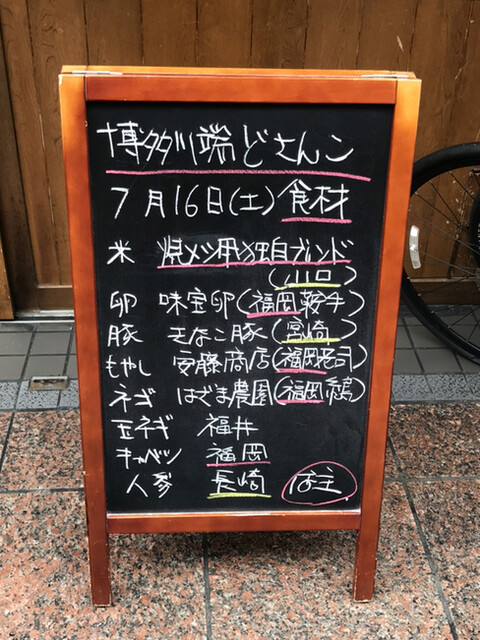 博多川端どさんこ
7月16日(土)食材
米 焼メシ用独自ブレンド
(川口)
卵 味宝卵(福岡鞍手)
豚 きなこ豚(宮崎)
もやし 安藤商店(福岡庄司)
ネギ はざま農園(福岡 鶏)
玉ネギ 福井
キャベツ 福岡
人参 長崎 店主